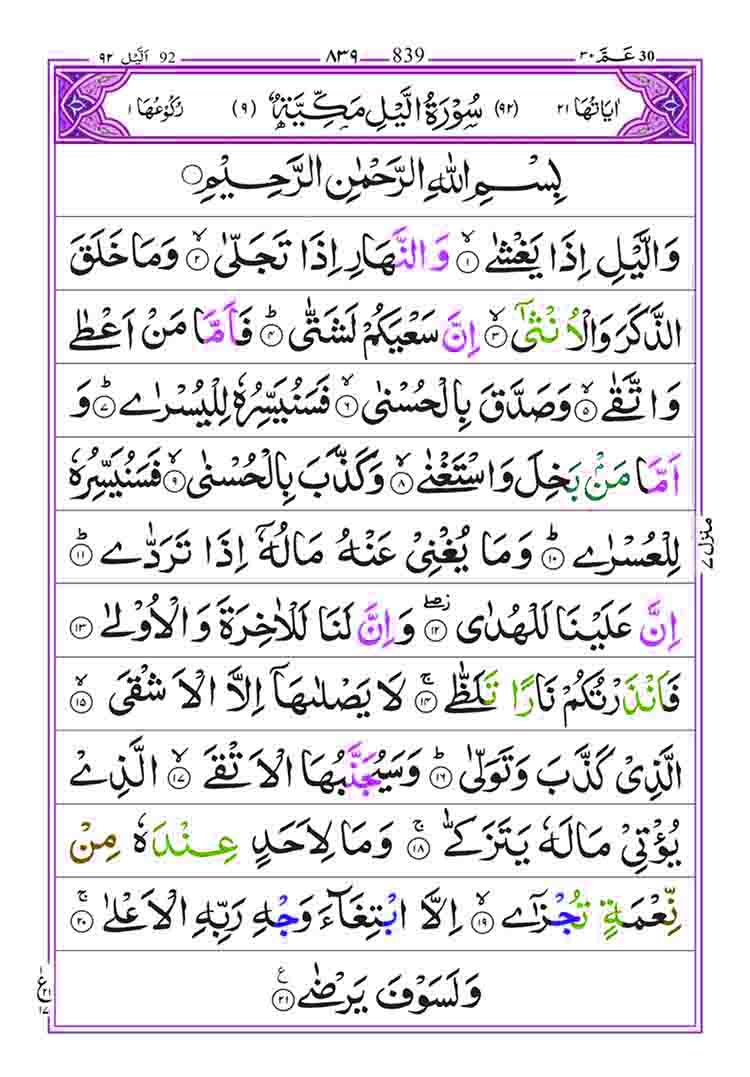 30 عَمَّ ٣٠ 839 ٨٣٩ 92 اَلَّيْل ٩٢
اٰيَاتُهَا ٢١ (٩٢) سُوْرَةُ الَّيْلِ مَكِّيَّةٌ (٩) رُكُوْعُهَا ١
بِسْمِ اللهِ الرَّحْمٰنِ الرَّحِيْمِ
وَالَّيْلِ اِذَا يَغْشٰى ۙ﴿١﴾ وَالنَّهَارِ اِذَا تَجَلّٰى ۙ﴿٢﴾ وَمَا خَلَقَ
الذَّكَرَ وَالْاُنْثٰٓى ۙ﴿٣﴾ اِنَّ سَعْيَكُمْ لَشَتّٰى ؕ﴿٤﴾ فَاَمَّا مَنْ اَعْطٰى
وَاتَّقٰى ۙ﴿٥﴾ وَصَدَّقَ بِالْحُسْنٰى ۙ﴿٦﴾ فَسَنُيَسِّرُهٗ لِلْيُسْرٰى ؕ﴿٧﴾ وَ
اَمَّا مَنْۢ بَخِلَ وَاسْتَغْنٰى ۙ﴿٨﴾ وَكَذَّبَ بِالْحُسْنٰى ۙ﴿٩﴾ فَسَنُيَسِّرُهٗ
لِلْعُسْرٰى ؕ﴿١٠﴾ وَمَا يُغْنِيْ عَنْهُ مَالُهٗۤ اِذَا تَرَدّٰى ؕ﴿١١﴾
اِنَّ عَلَيْنَا لَلْهُدٰى ۖ﴿١٢﴾ وَاِنَّ لَنَا لَلْاٰخِرَةَ وَالْاُوْلٰى ﴿١٣﴾
فَاَنْذَرْتُكُمْ نَارًا تَلَظّٰى ۚ﴿١٤﴾ لَا يَصْلٰىهَاۤ اِلَّا الْاَشْقَى ۙ﴿١٥﴾
الَّذِيْ كَذَّبَ وَتَوَلّٰى ؕ﴿١٦﴾ وَسَيُجَنَّبُهَا الْاَتْقَى ۙ﴿١٧﴾ الَّذِيْ
يُؤْتِيْ مَالَهٗ يَتَزَكّٰى ۚ﴿١٨﴾ وَمَا لِاَحَدٍ عِنْدَهٗ مِنْ
نِّعْمَةٍ تُجْزٰۤى ۙ﴿١٩﴾ اِلَّا ابْتِغَآءَ وَجْهِ رَبِّهِ الْاَعْلٰى ۚ﴿٢٠﴾
وَلَسَوْفَ يَرْضٰى ﴿٢١﴾ ع
منزل ٧
١
ع
٢١
١٧